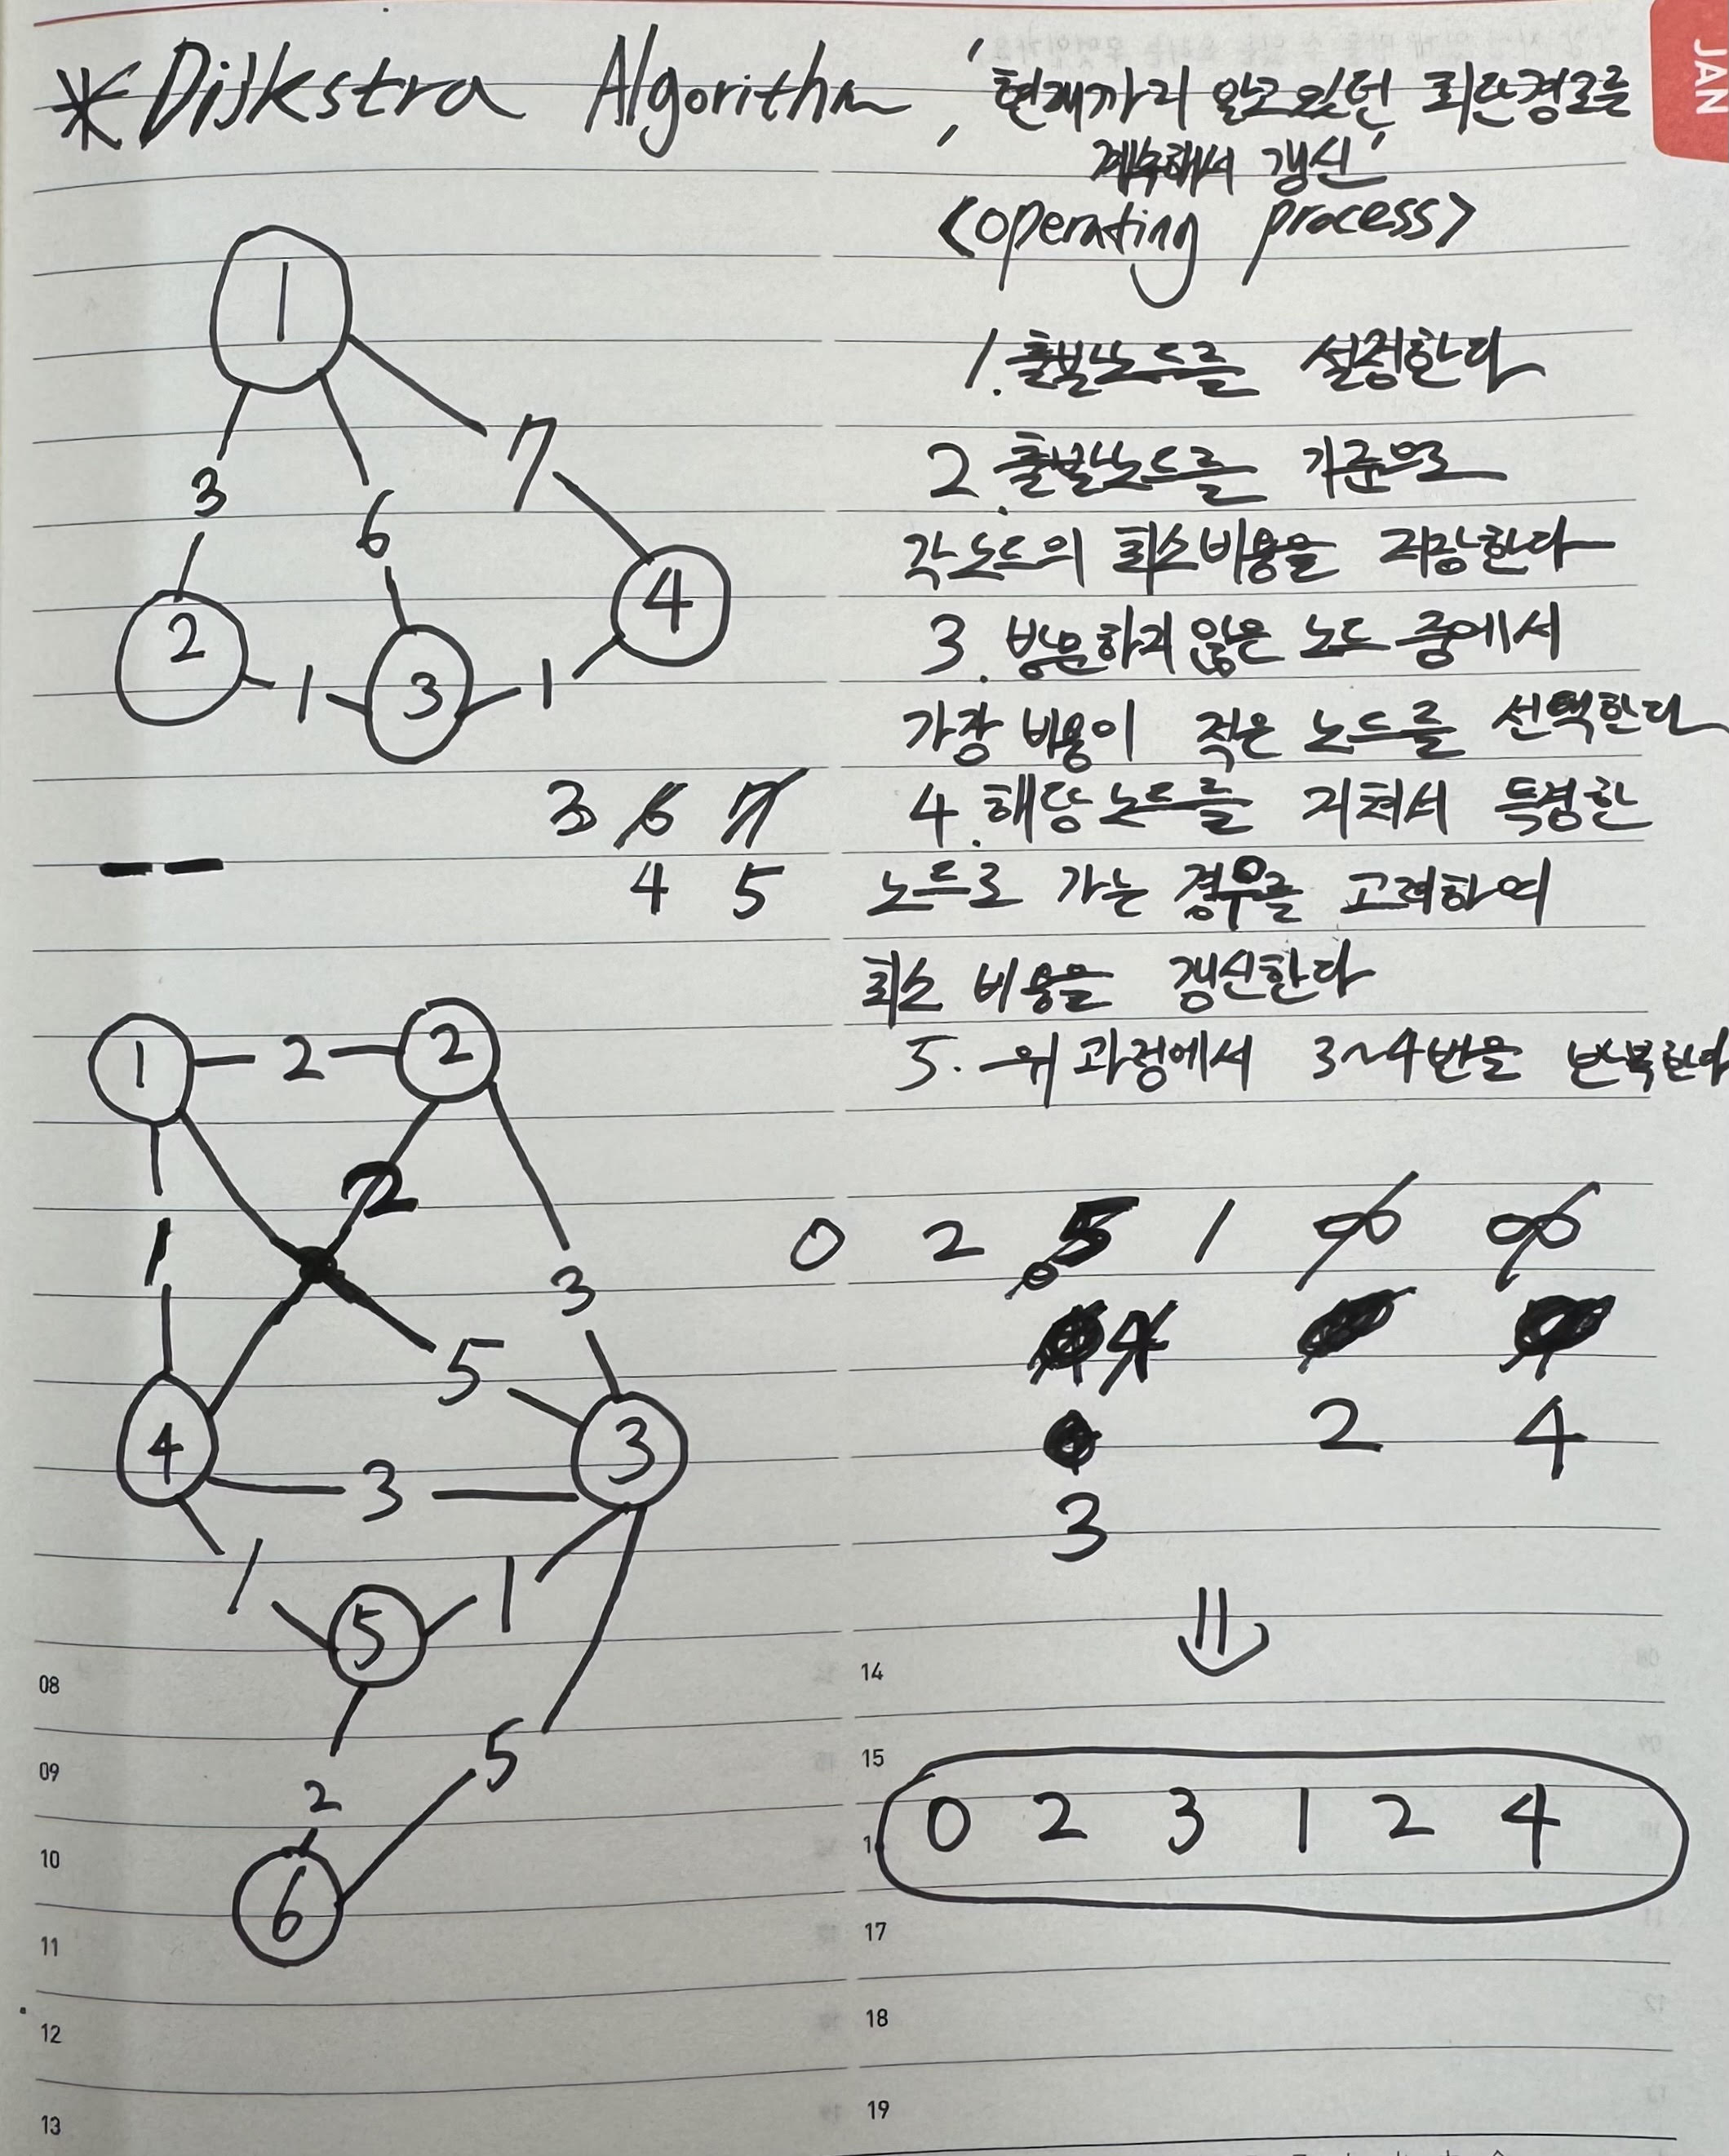 JAN
*Dijkstra Algorithm, '현재까지 알고있던 최단경로를
계속해서 갱신'
<operating process>
1. 출발노드를 설정한다
2. 출발노드를 기준으로
각 노드의 최소비용을 저장한다
3. 방문하지 않은 노드 중에서
가장 비용이 적은 노드를 선택한다
4. 해당 노드를 거쳐서 특정한
노드로 가는 경우를 고려하여
최소 비용을 갱신한다
5. 위 과정에서 3~4번을 반복한다
1
7
3
6
2
3
4
1
1
3 6 7
4 5
1 2 2
2
1
3
5
4
3
3
1
1
5
5
2
6
0 2 5 1 ∞ ∞
4
2 4
3
⇓
0 2 3 1 2 4
08
09
10
11
12
13
14
15
17
18
19